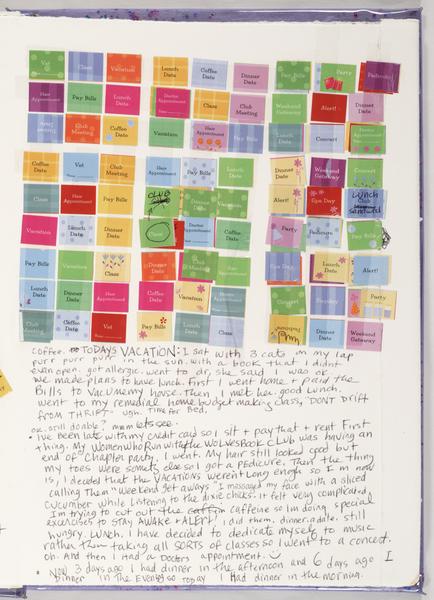 Vet Class Vacation Lunch Date Coffee Date Dinner Date Pay Bills Party Pedicure
Hair Appointment Pay Bills Lunch Date Doctor Appointment Class Hair Appointment Weekend Getaway Alert! Dinner Date
Club Meeting Coffee Date Vacation Hair Appointment Pay Bills Lunch Date Concert Doctor Appointment
Coffee Date Vet Club Meeting Lunch Date Pay Bills Lunch Date Dinner Date Weekend Getaway Concert
Class Hair Appointment Pay Bills CLUB Dinner Date Vacation Alert! Spa Day Lunch
Vacation Lunch Date Dinner Date Doctor Appointment Coffee Date Party Pedicure Pay Bills
Pay Bills Vacation Class Dinner Date Club Meeting Spa Day Lunch Date Alert!
Lunch Date Dinner Date Hair Appointment Coffee Date Vacation Lunch Date Concert Party
Club Meeting Coffee Date Vet Pay Bills Lunch Date Class Dinner Date Weekend Getaway
coffee. TODAYS VACATION: I sat with 3 cats on my lap
purr purr purr in the sun. with a book that I didnt
even open. got allergic. went to dr, she said I was ok +
we made plans to have lunch. First I went home + paid the
Bills to vacuum my house. Then I met her. good lunch.
went to my remedial home budget making class, "DONT DRIFT
FROM THRIFT" ugh. Time for Bed.
ok. still doable? mmm lets see.
• I've been late with my credit card so I sit + pay that + rent First
thing. My Women Who Run with the WOLVES BOOK CLUB was having an
end of Chapter party. I went. My hair still looked good but
my toes were something else so I got a PEDICURE. Then the thing
is, I decided that the VACATIONS weren't long enough so I'm now
calling them "weekend get aways" I massaged my face with a sliced
cucumber while listening to the dixie chicks. it felt very complicated
I'm trying to cut out the caffeine so Im doing special
exercises to STAY AWAKE + ALERT! I did them. dinner, a date. still
hungry. LUNCH. I have decided to dedicate myself to music
rather than taking all SORTS of classes so I went to a concert.
oh. And then I had a Doctors appointment.
• Now 3 days ago I had dinner in the afternoon and 6 days ago I
Dinner in the Evening so today I Had dinner in the morning.